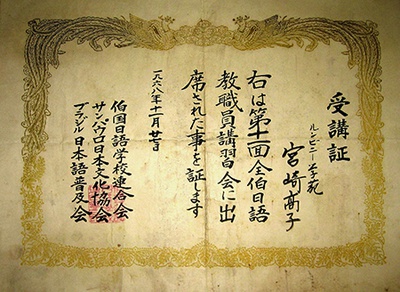 受講証
ルンビニー学苑
宮崎高子
右は第十一回全伯日語
教職員講習会に出
席された事を証します
一九六八年十一月廿日
伯国日語学校連合会
サンパウロ日本文化協会
ブラジル日本語普及会